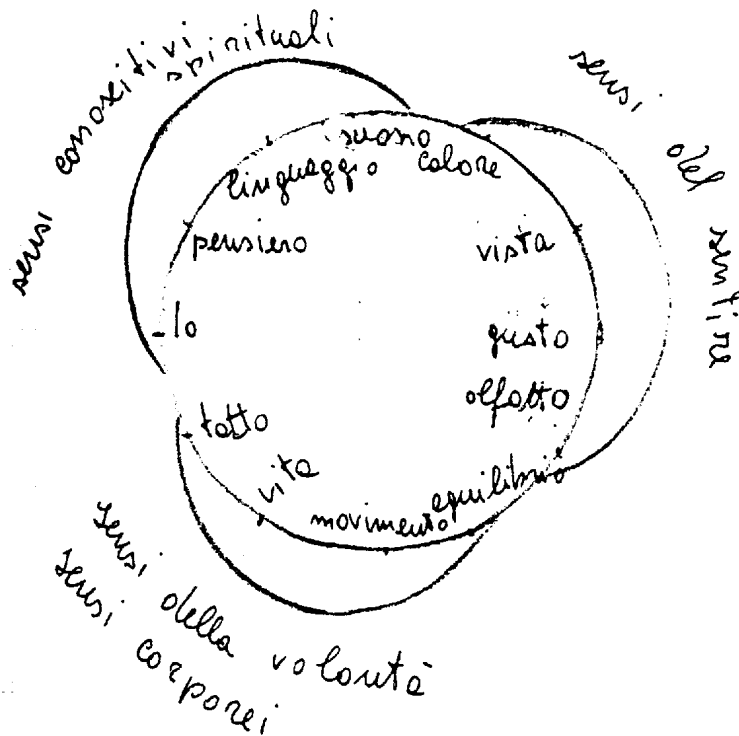 sensi conoscitivi
spirituali
sensi del sentire
suono
linguaggio
calore
pensiero
vista
Io
gusto
olfatto
tatto
equilibrio
vita
movimento
sensi della volontà
sensi corporei